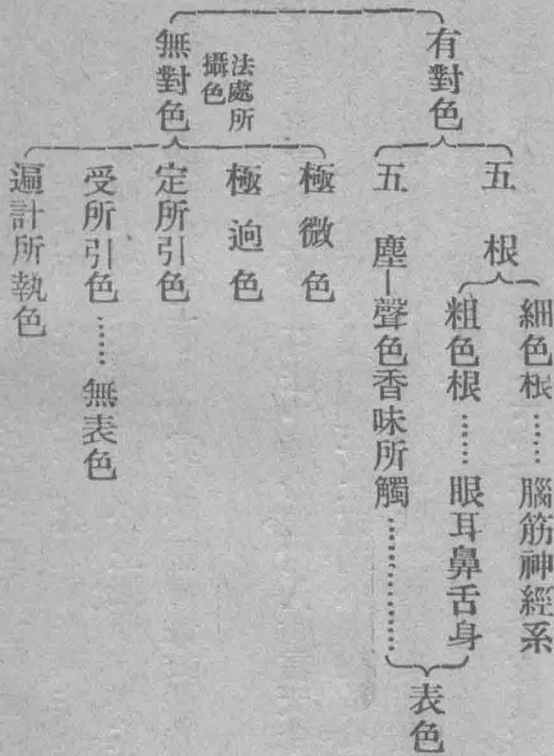 有對色
五根
細色根……腦筋神經系
粗色根……眼耳鼻舌身
五塵—聲色香味所觸…………
表色
無對色
法處所
攝色
極微色
極逈色
定所引色
受所引色……無表色
遍計所執色